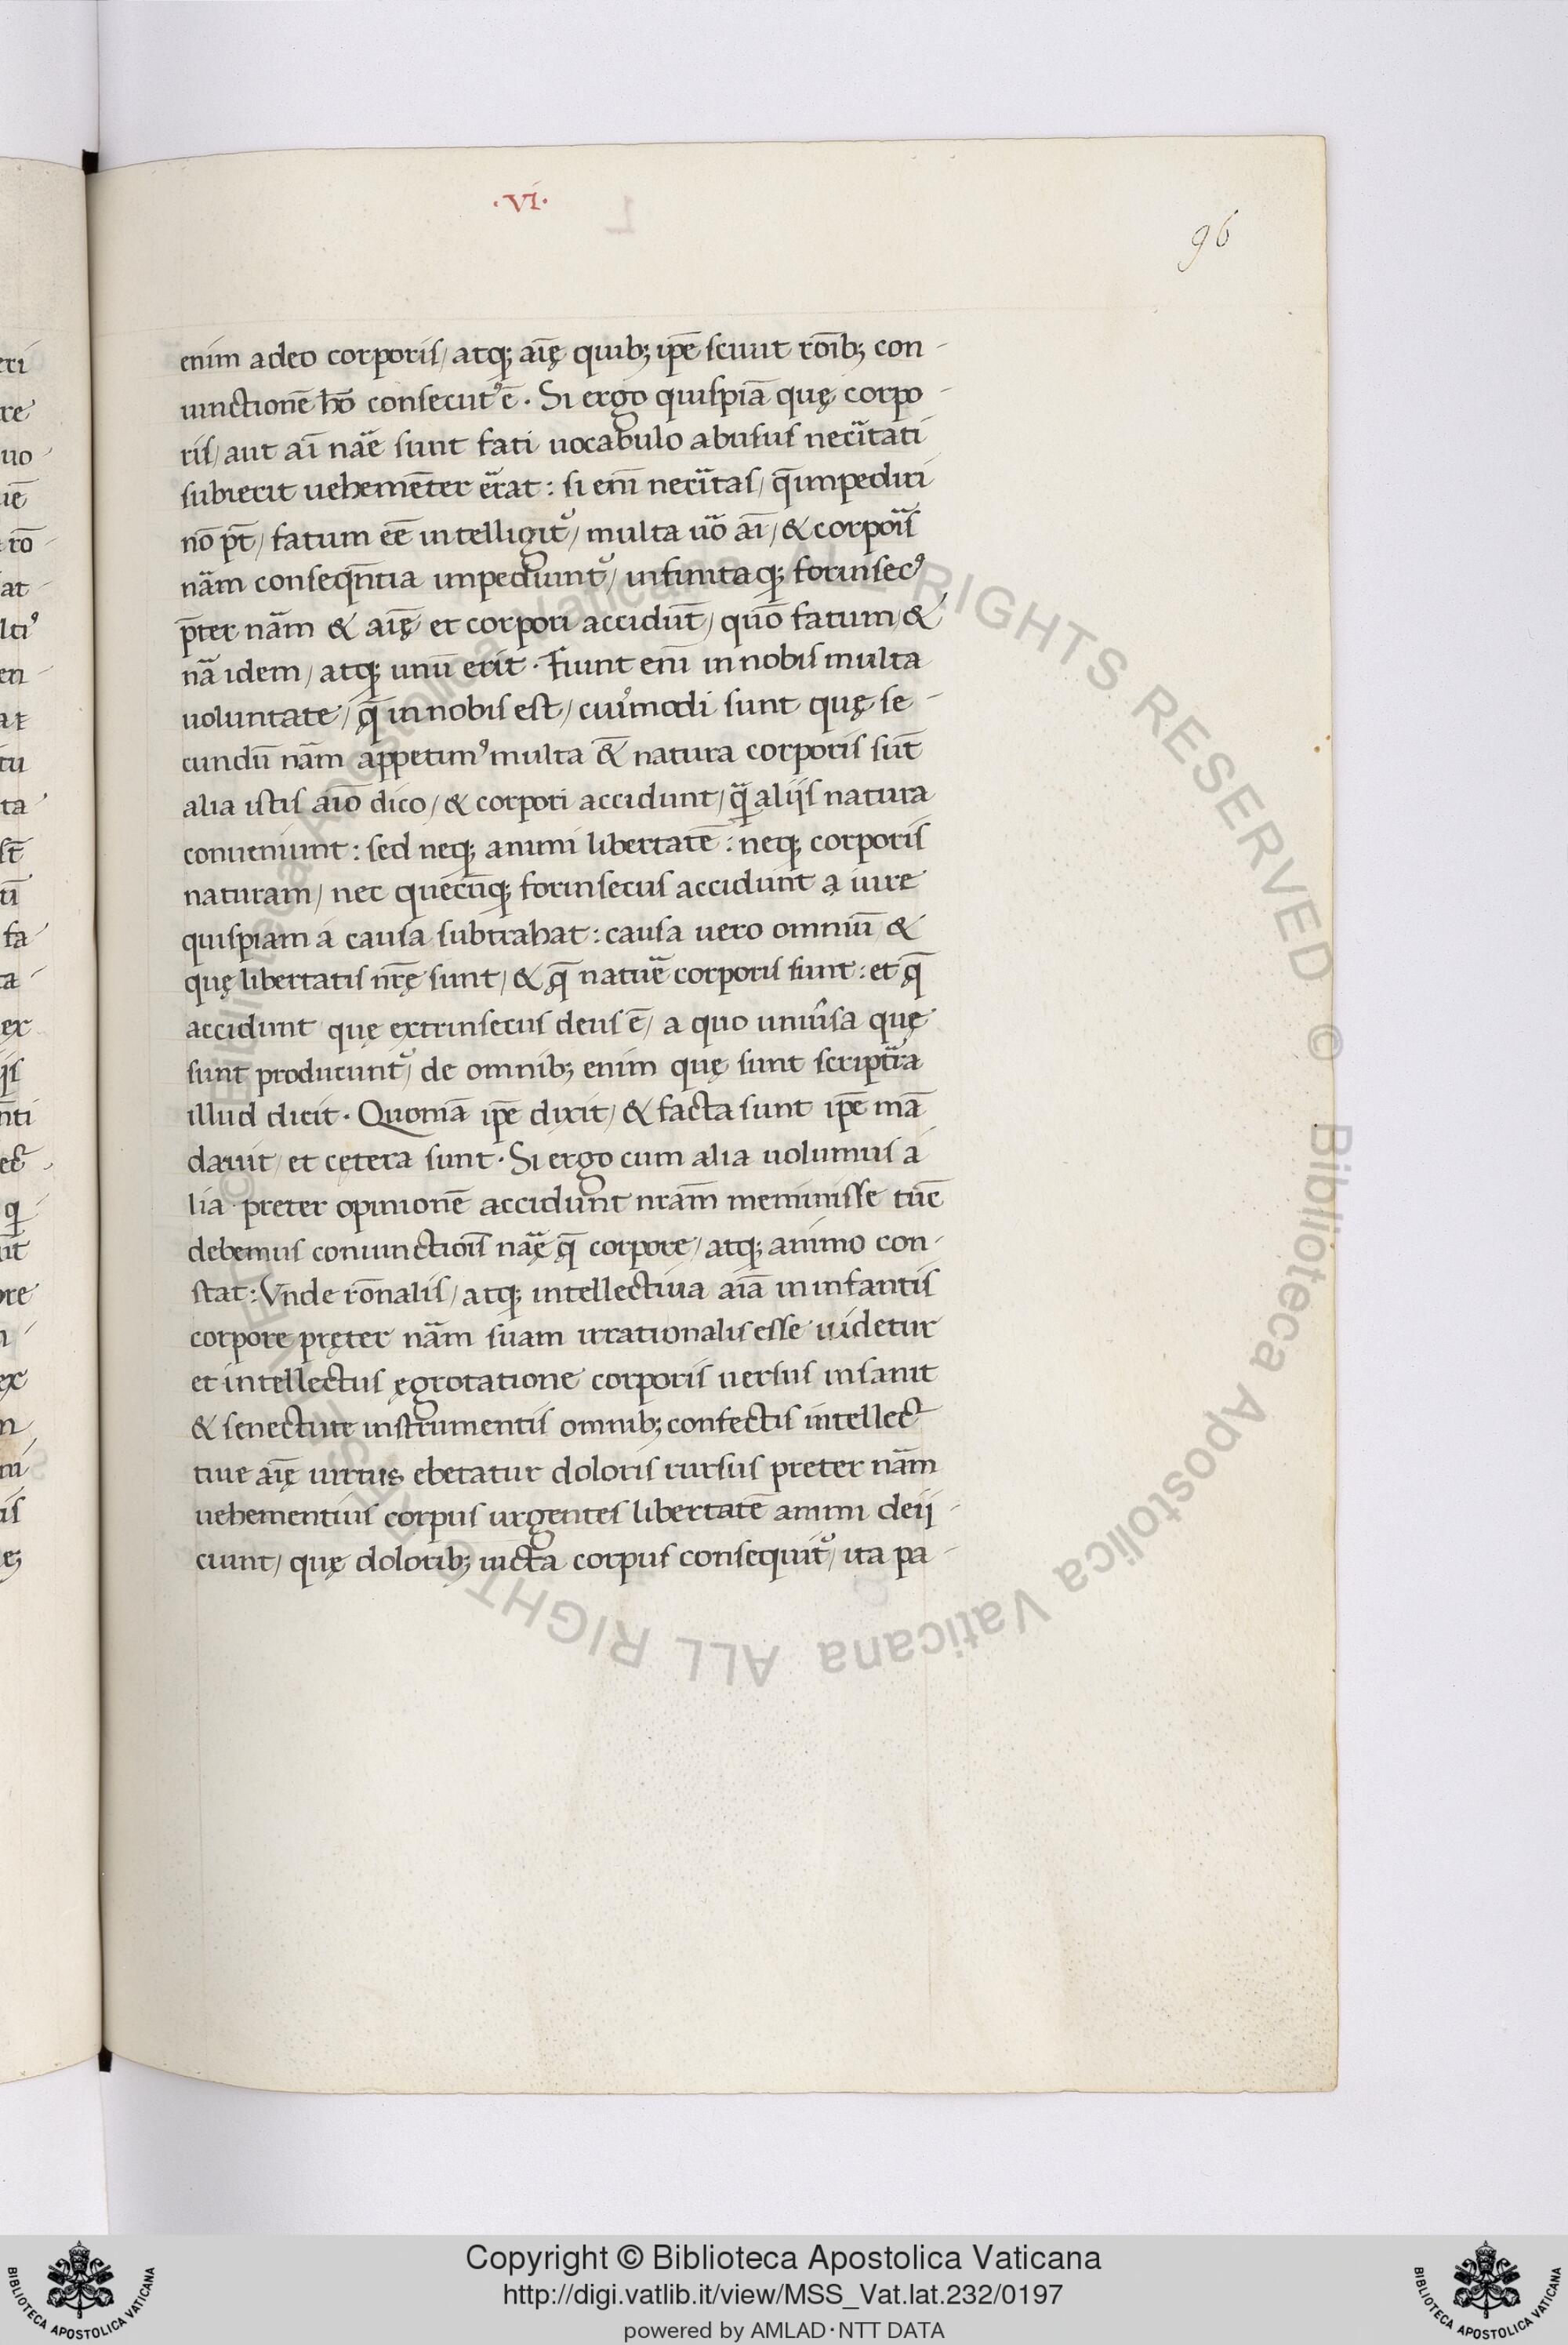 ·VI·
96
enim adeo corporis/ atq; aīę quib; ip̄e sciuit rōīb; con-
iunctionē hō consecut᾿ ē. Si ergo quispiā quę corpo-
ris/ aut aī nāe sunt fati uocabulo abusus necītati
subierit uehemēter erat: si enī necītas/ q̄ impediri
nō pt̄/ fatum eē intelligit᾿/ multa uō aī/ & corpoīs
nām conseqn̄tia impediunt᾿/ infinitaq; forinsec᾿
p̄ter nām & aīę et corpori accidūt/ quō fatum/ &
nā idem/ atq; unū erit. Fiunt enī in nobis multa
uoluntate/ q̄ in nobis est/ cui᾿modi sunt quę se-
cundū nām appetim᾿ multa & natura corporis sūt
alia istis aīo dico/ & corpori accidunt/ q̄ aliis natura
conueniunt: sed neq; animi libertatē: neq; corporis
naturam/ nec quecūq; forinsecus accidunt a iure
quispiam a causa subtrahat: causa uero omniū &
quę libertatis nr̄ę sunt/ & q̄ natuē corporis sunt: et q̄
accidunt quę extrinsecus deus ē/ a quo uniūsa quę
sunt producunt᾿/ de omnib; enim quę sunt scriptūa
illud dicit. Quoniā ip̄e dixit/ & facta sunt ip̄e mā
dauit/ et cętera sunt. Si ergo cum alia uolumus a
lia preter opinionē accidunt nr̄am meminisse tūē
debemus coniunctiōis nāę q̄ corpore/ atq; animo con-
stat: Vnde rōnalis/ atq; intellectiua aīā in infantis
corpore pręter nām suam irrationalis esse uidetur
et intellectus ęgrotatione corporis uersus insanit
& senectute instrumentis omnib; confectis intellec
tiue aīę uirtus ebetatur doloris rursus preter nām
uehementius corpus urgentes libertatē animi deij-
ciunt/ quę dolorib; iucta corpus consequit᾿/ ita pa-
eri
re
uo
uē
rō
at
lti᾿
en-
at
tu
ta
st̄
tī
fa
ta-
ex
ijs
n̄ti
q
ūt
ore
ex
n
ni
is
e;
© Biblioteca Apostolica Vaticana ALL RIGHTS RESERVED © Biblioteca Apostolica Vaticana ALL RIGHTS RESERVED
BIBLIOTECA APOSTOLICA VATICANA
Copyright © Biblioteca Apostolica Vaticana
http://digi.vatlib.it/view/MSS_Vat.lat.232/0197
powered by AMLAD·NTT DATA
BIBLIOTECA APOSTOLICA VATICANA